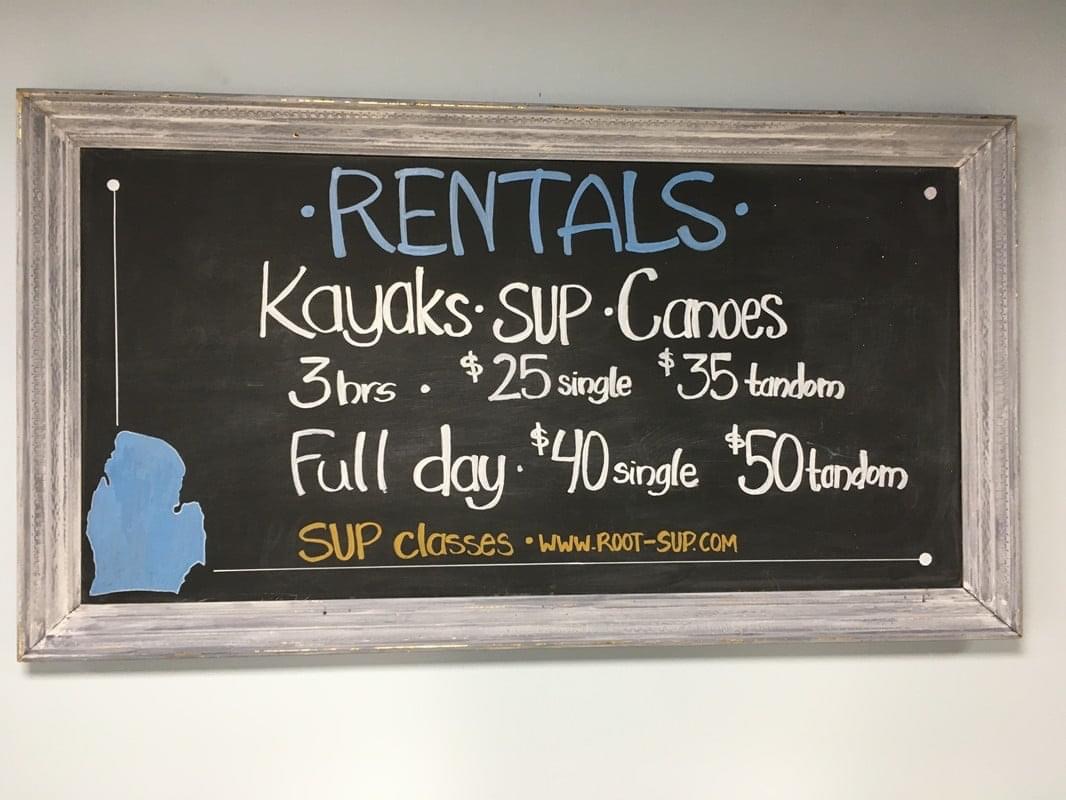 ·RENTALS·
Kayaks·SUP·Canoes
3hrs · $25 single $35 tandom
Full day · $40 single $50 tandom
SUP classes · WWW.ROOT-SUP.COM